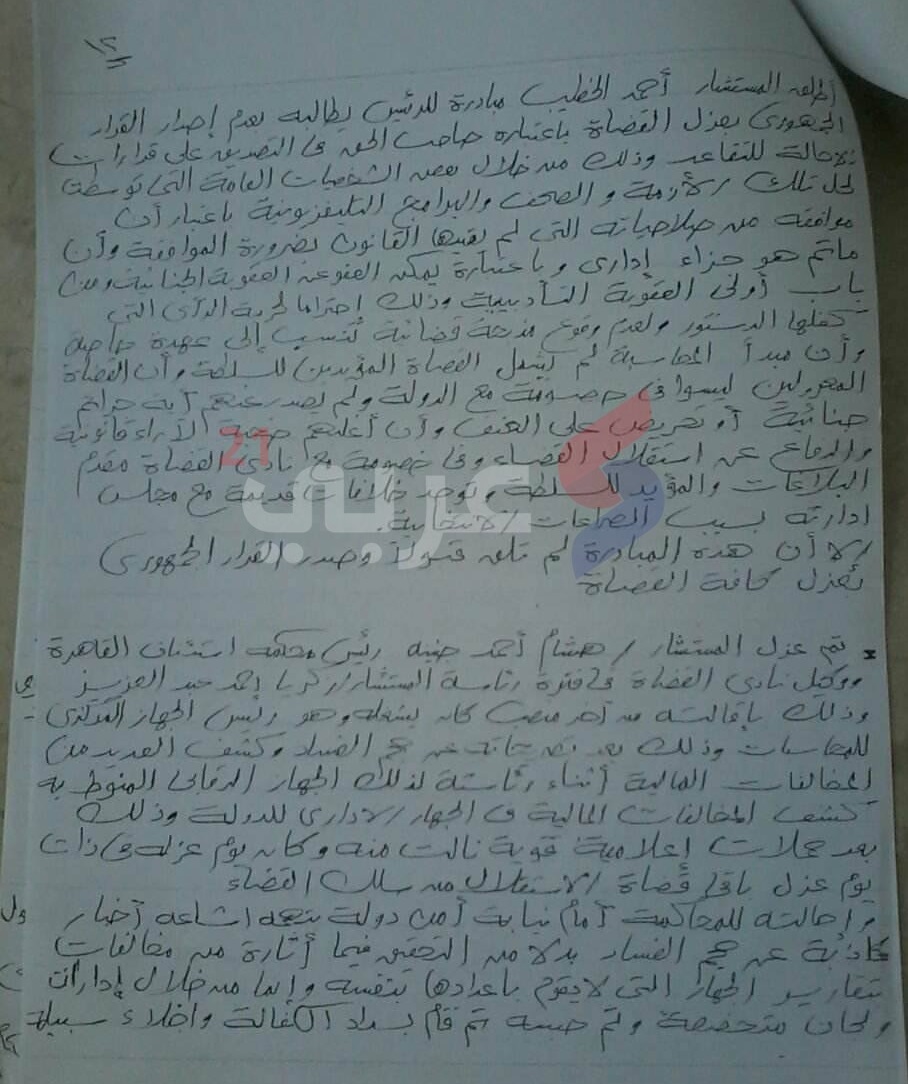 أطلق المستشار أحمد الخطيب مبادرة للرئيس يطالبه بعدم إصدار القرار
الجمهوري بعزل القضاة باعتباره صاحب الحق في التصديق على قرارات
الإحالة للتقاعد وذلك من خلال بعض الشخصيات العامة التي توسطت
لحل تلك الأزمة والصحف والبرامج التليفزيونية باعتبار أن
موافقته من صلاحياته التي لم يقيدها القانون بضرورة الموافقة وأن
ماتم هو جزاء إداري وباعتبارة يمكن العفو عن العقوبة الجنائية ومن
باب أولى العقوبة التأديبية وذلك إحتراما لحرية الرأي التي
كفلها الدستور ولعدم وقوع مذبحة قضائية تنسب إلى عهدة خاصة
وأن مبدأ المحاسبة لم يشمل القضاة المؤيدين للسلطة وأن القضاة
المعزولين ليسوا في خصومة مع الدولة ولم يصدر عنهم أية جرائم
جنائية أو تحريض على العنف وأن أغلبهم ضحية الأراء قانونية
والدفاع عن استقلال القضاء وفي خصومة مع نادي القضاة مقدم
البلاغات والمؤيد للسلطة وتوجد خلافات قديمة مع مجلس
ادارته بسبب الصراعات الانتخابية
إلا أن هذه المبادرة لم تلق قبولاً وصدر القرار الجمهوري
بعزل كافة القضاة
تم عزل المستشار / هشام أحمد جنينه رئيس محكمة استئناف القاهرة
ووكيل نادي القضاة في فترة رئاسة المستشار / زكريا احمد عبد العزيز
وذلك باقالته من آخر منصب كان يشغله وهو رئيس الجهاز المركزي
للمحاسبات وذلك بعد تصريحاته عن حجم الفساد وكشف العديد من
المخالفات المالية أثناء رئاستة لذلك الجهاز الرقابي المنوط به
كشف المخالفات المالية في الجهاز الاداري للدولة وذلك
بعد حملات إعلامية قوية نالت منه وكان يوم عزله في ذات
يوم عزل باقي قضاة الاستقلال من سلك القضاء
وإحالته للمحاكمة أمام نيابة أمن دولة بتهمه اشاعه أخبار
كاذبة عن حجم الفساد بدلا من التحقيق فيما أثارة من مخالفات
بتقارير الجهاز التي لايقوم باعدادها بنفسه وإنما من خلال إدارات
ولجان متخصصة وتم حبسه ثم قام بسداد الكفالة واخلاء سبيله
عربي 21